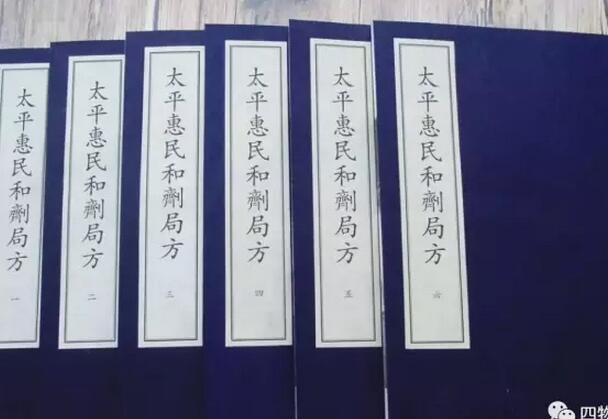 太平惠民和劑局方
一
太平惠民和劑局方
二
太平惠民和劑局方
三
太平惠民和劑局方
四
太平惠民和劑局方
五
太平惠民和劑局方
六
四物